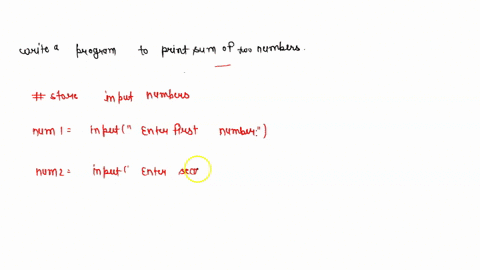 write a program to print sum of two numbers.
# store input numbers
num1 = input(" Enter first number:")
num2 = input(' Enter seco